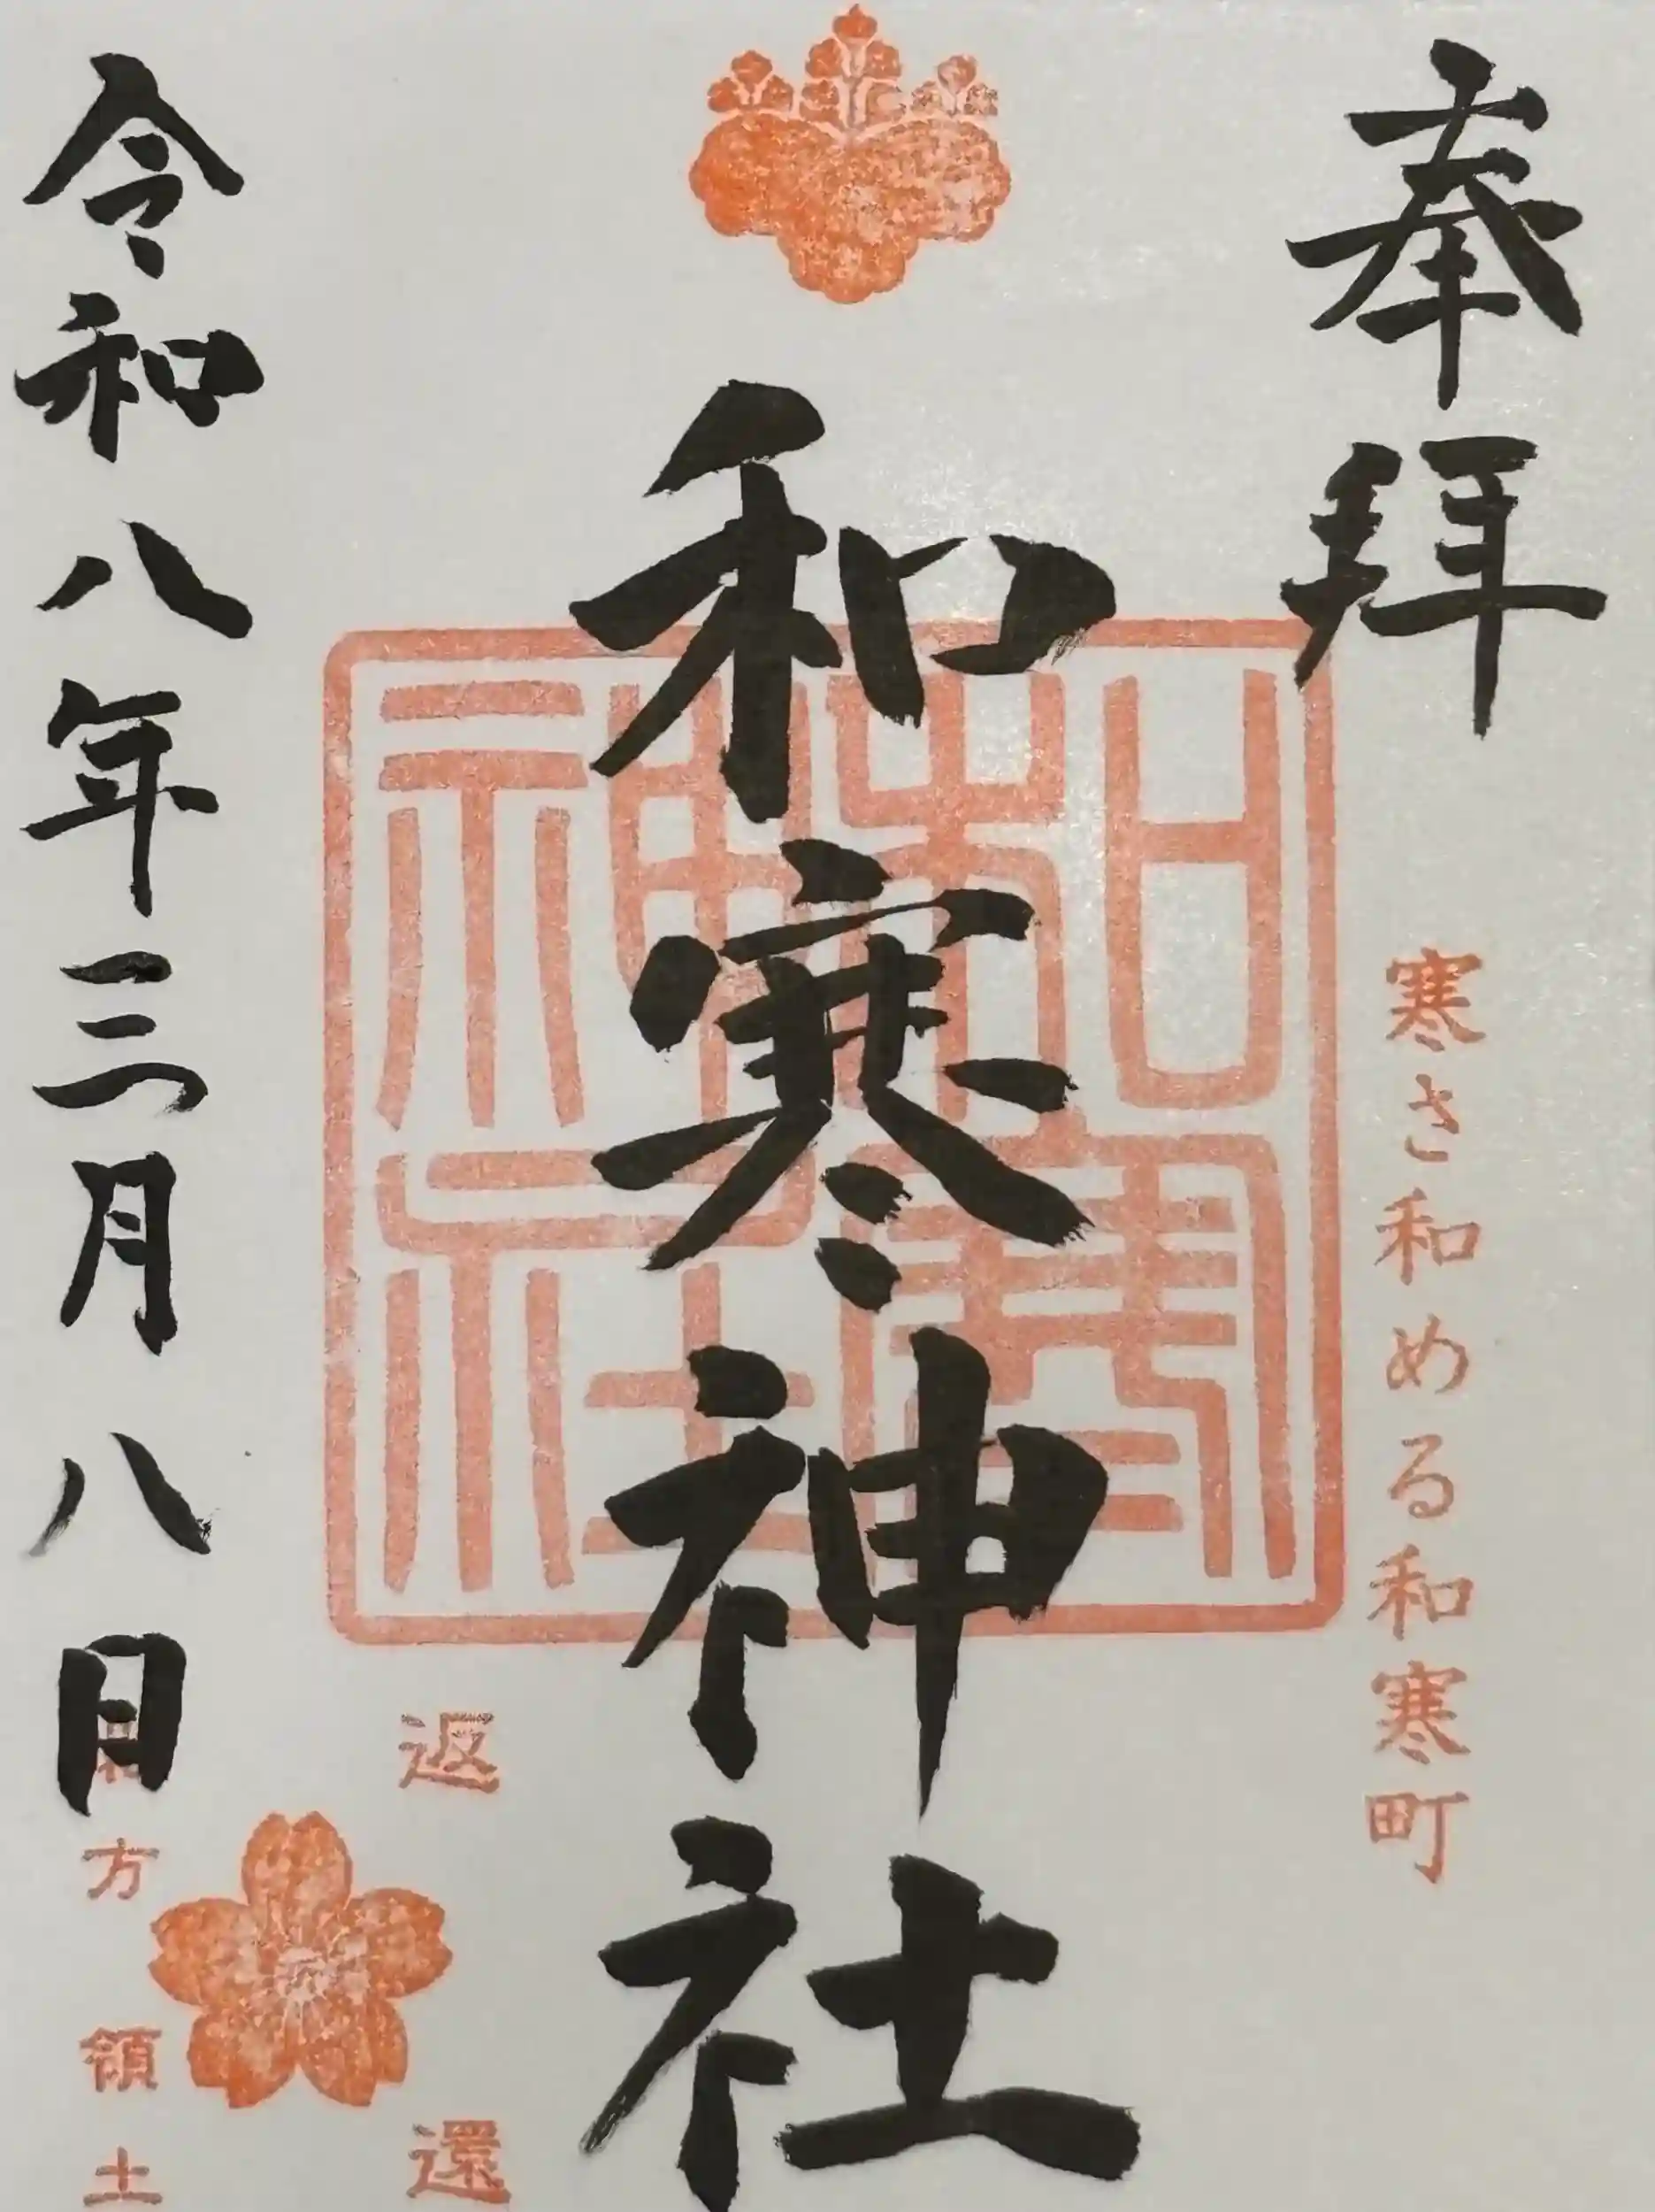 奉拝
寒さ和める和寒町
和寒神社
和寒神社
返還
令和八年三月八日
北方領土